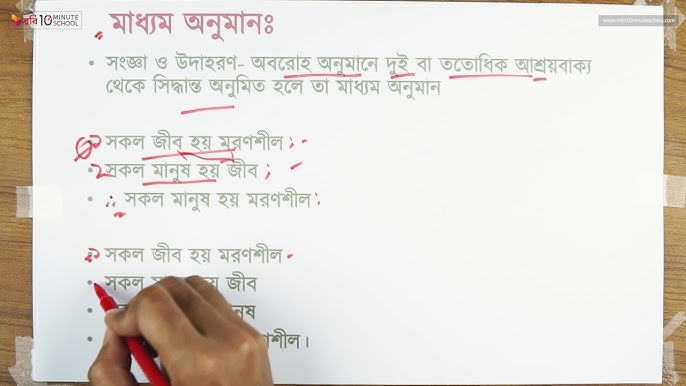 রবি 10 MINUTE SCHOOL
www.robi10minuteschool.com
মাধ্যম অনুমানঃ
• সংজ্ঞা ও উদাহরণ- অবরোহ অনুমানে দুই বা ততোধিক আশ্রয়বাক্য
থেকে সিদ্ধান্ত অনুমিত হলে তা মাধ্যম অনুমান
সকল জীব হয় মরণশীল ;
সকল মানুষ হয় জীব ;
∴ সকল মানুষ হয় মরণশীল
সকল জীব হয় মরণশীল
• সকল হয় জীব